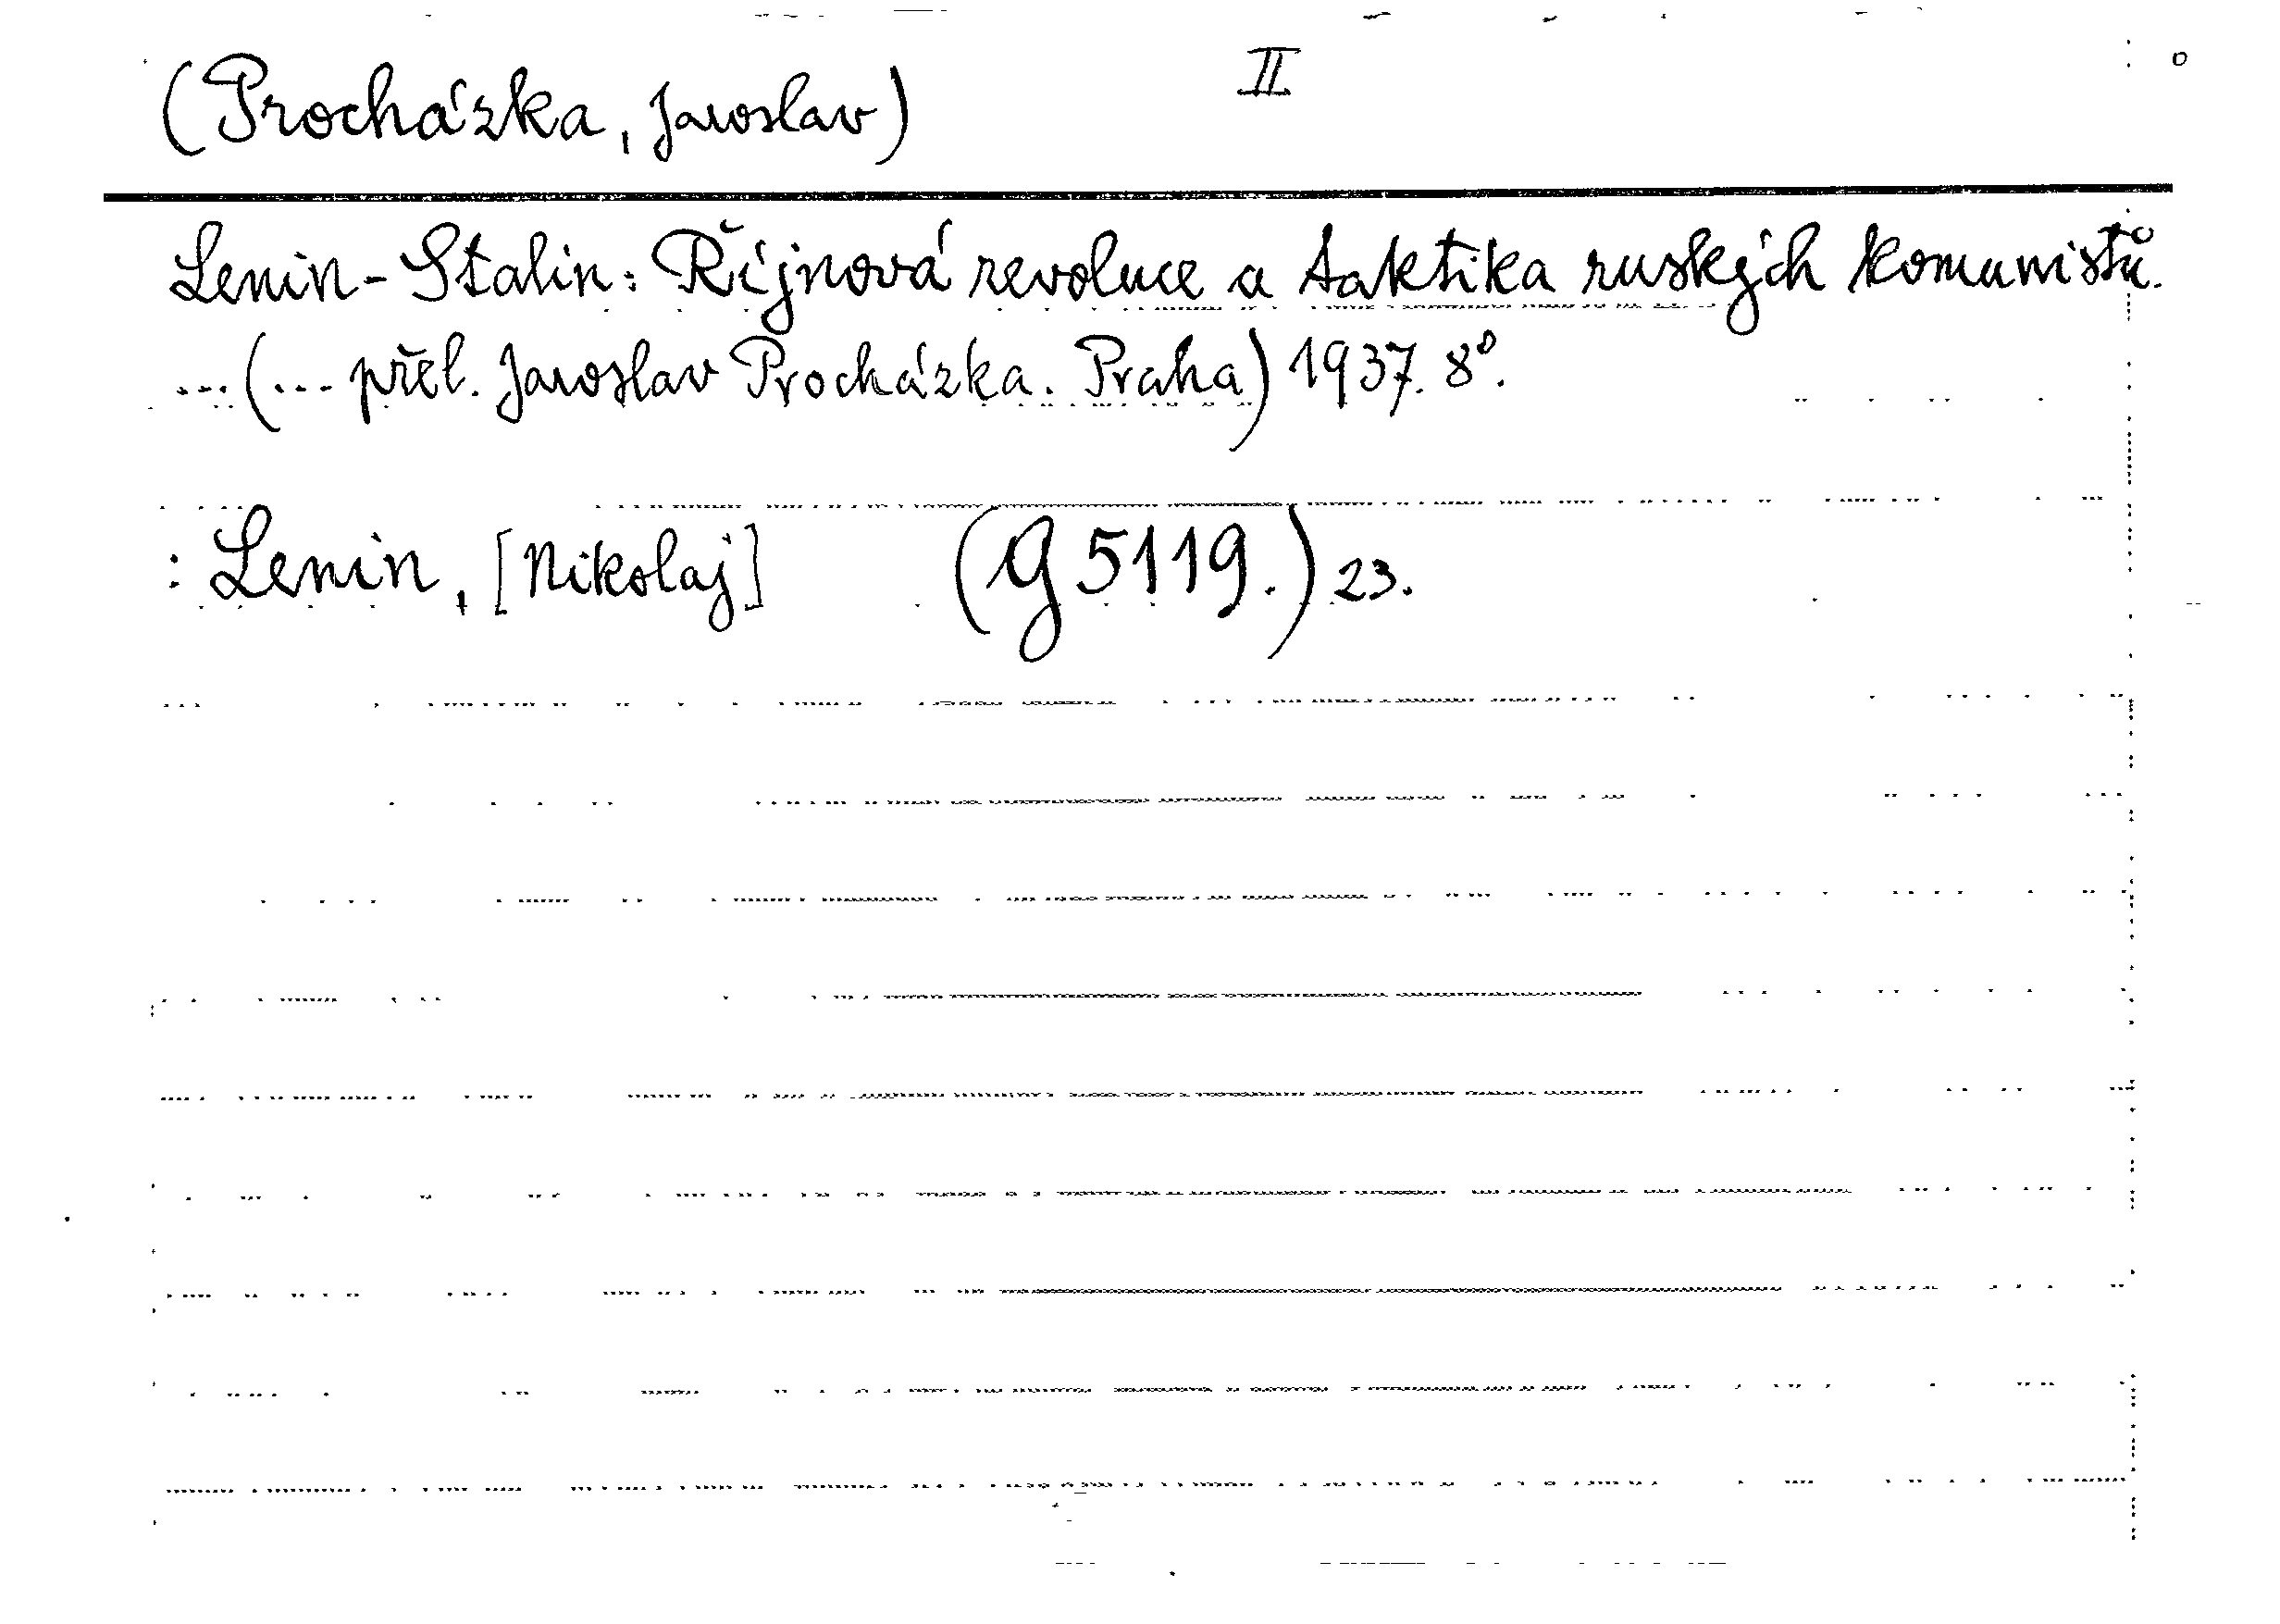 (Procházka, Jaroslav) II
Lenin-Stalin: Říjnová revoluce a taktika ruských komunistů.
...(... přel. Jaroslav Procházka. Praha) 1937. 8°.
: Lenin, [Nikolaj] (G 5119.) 23.